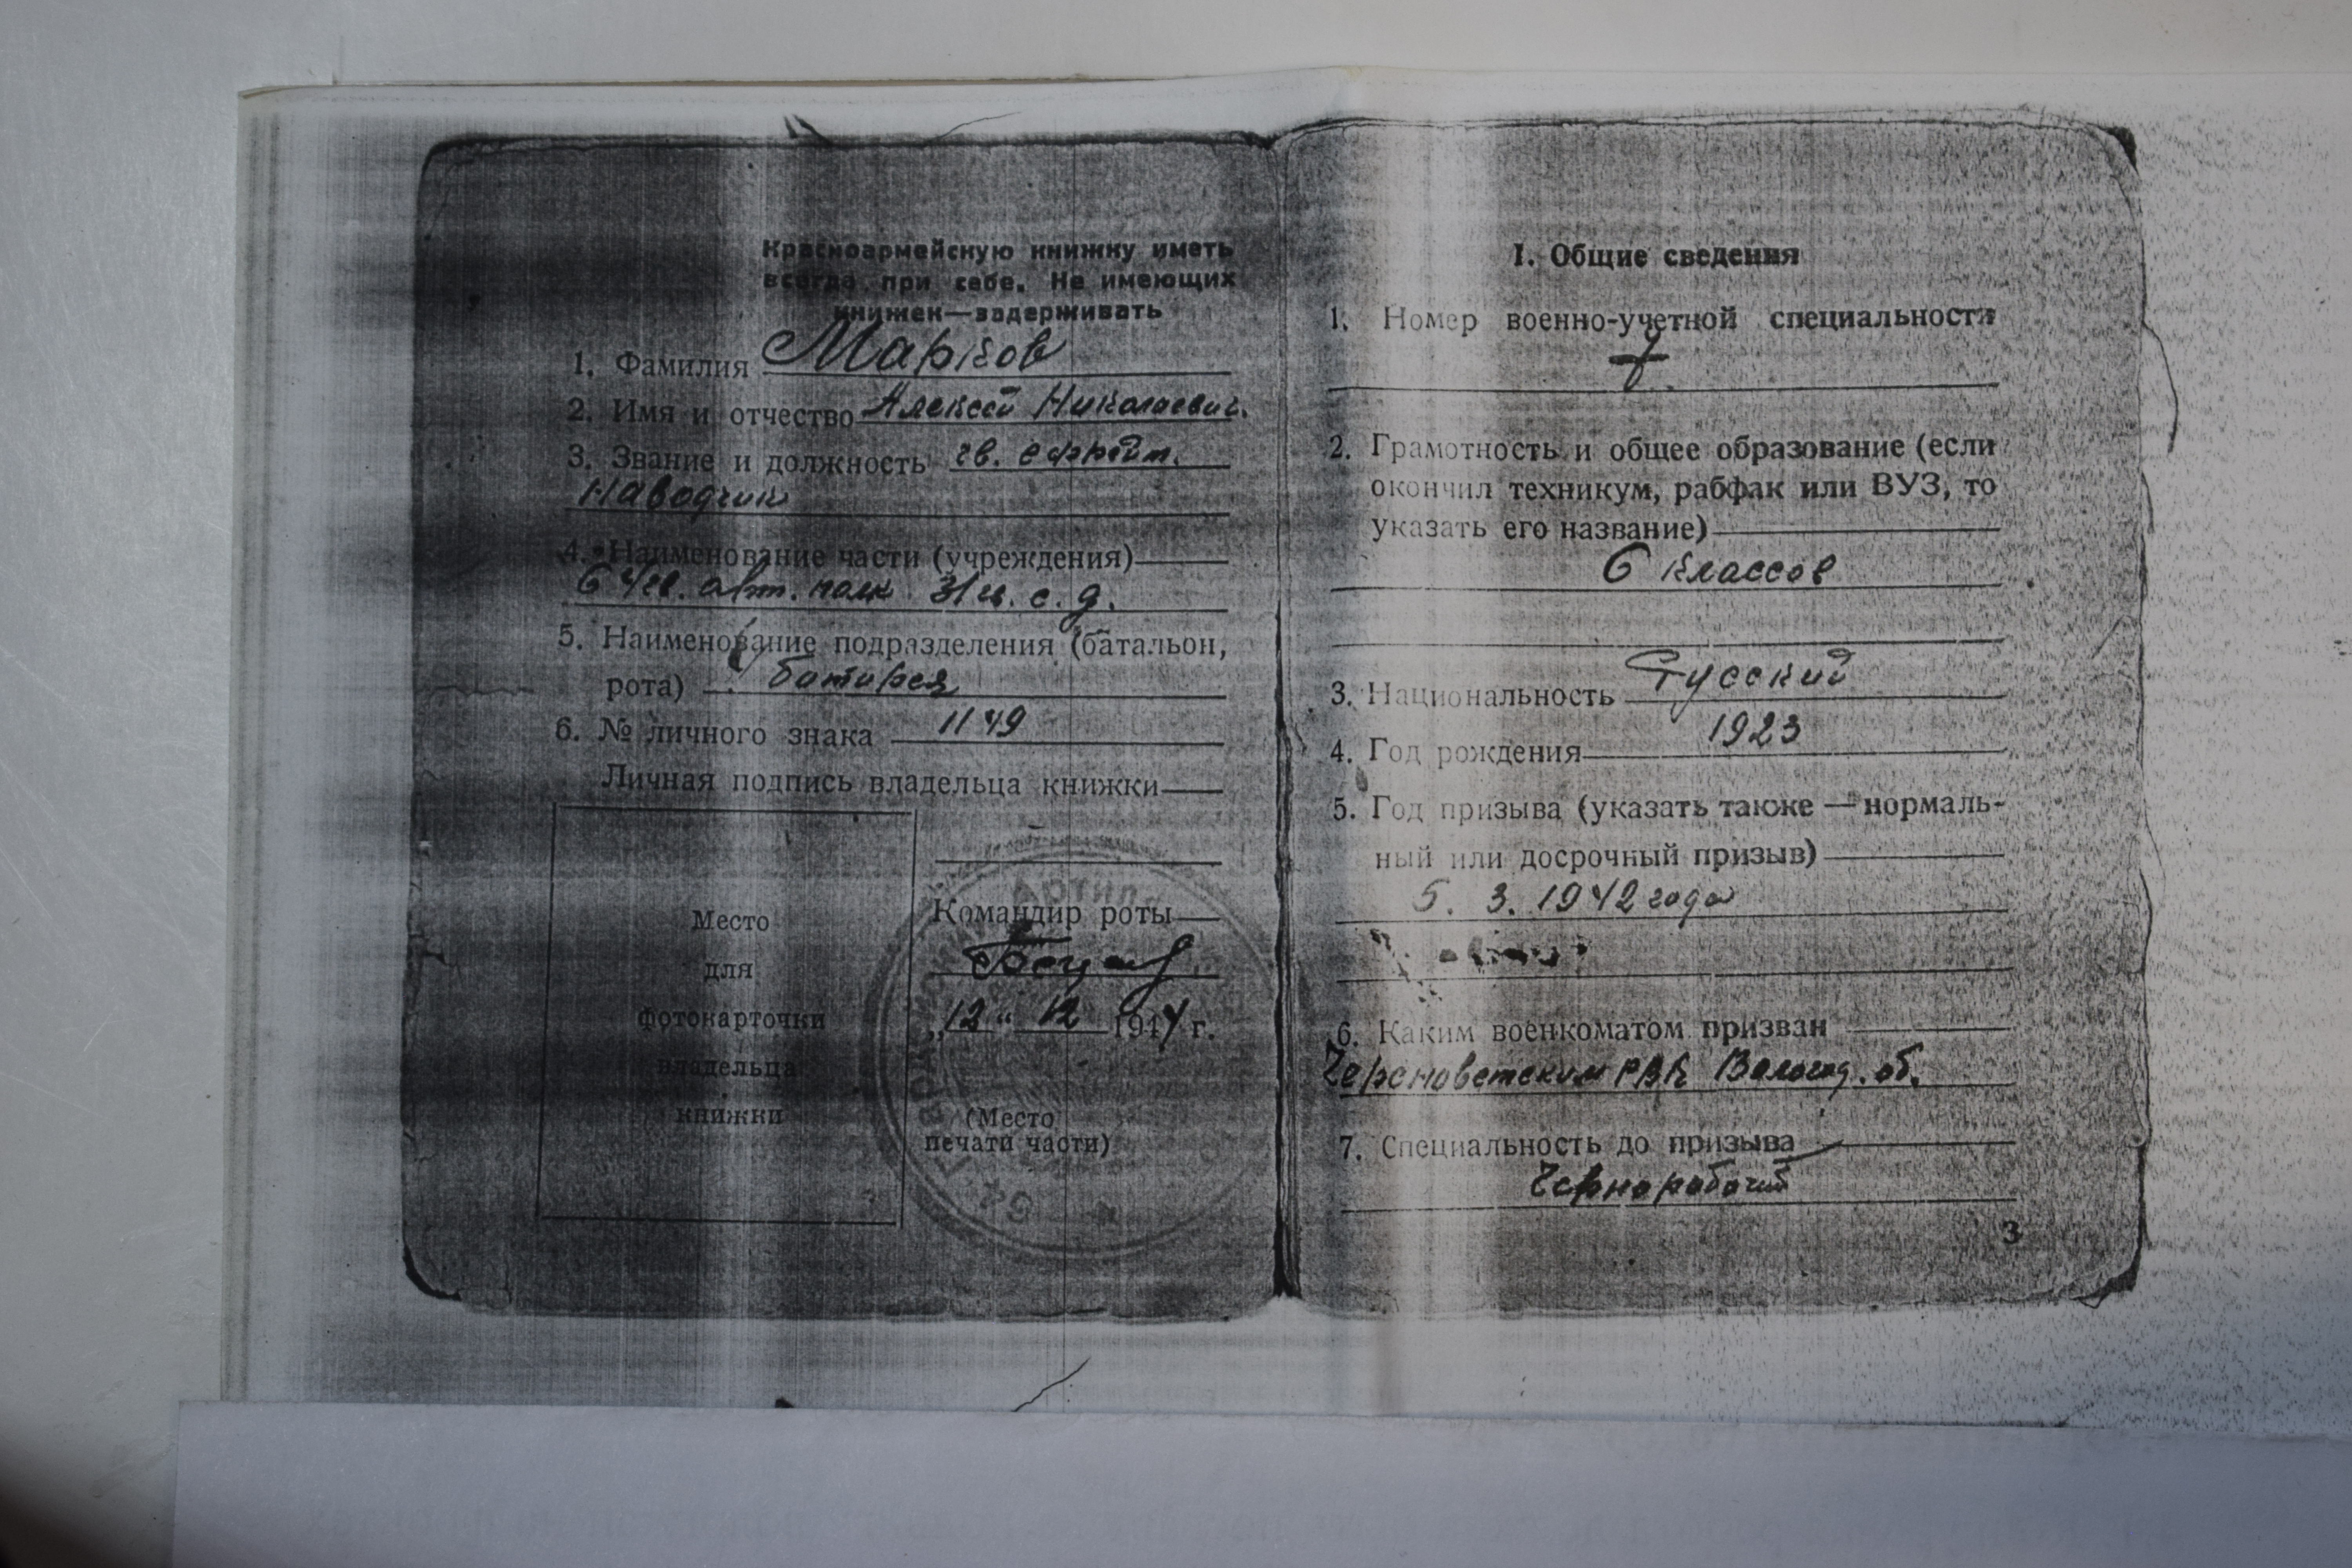 Красноармейскую книжку иметь
всегда при себе. Не имеющих
книжек—задерживать
1. Фамилия Марков
2. Имя и отчество Алексей Николаевич.
3. Звание и должность гв. ефрейт.
наводчик
4. Наименование части (учреждения)
64 гв. арт. полк 31 гв. с. д.
5. Наименование подразделения (батальон,
рота) батарея
6. № личного знака 1149
Личная подпись владельца книжки
Место
для
фотокарточки
владельца
книжки
Командир роты
„12“ 12 1944 г.
(Место
печати части)
I. Общие сведения
1. Номер военно-учетной специальности
2. Грамотность и общее образование (если
окончил техникум, рабфак или ВУЗ, то
указать его название)
6 классов
3. Национальность Русский
4. Год рождения 1923
5. Год призыва (указать также — нормаль-
ный или досрочный призыв)
5. 3. 1942 года
6. Каким военкоматом призван
РВК Вологод. об.
7. Специальность до призыва
Чернорабочий
3